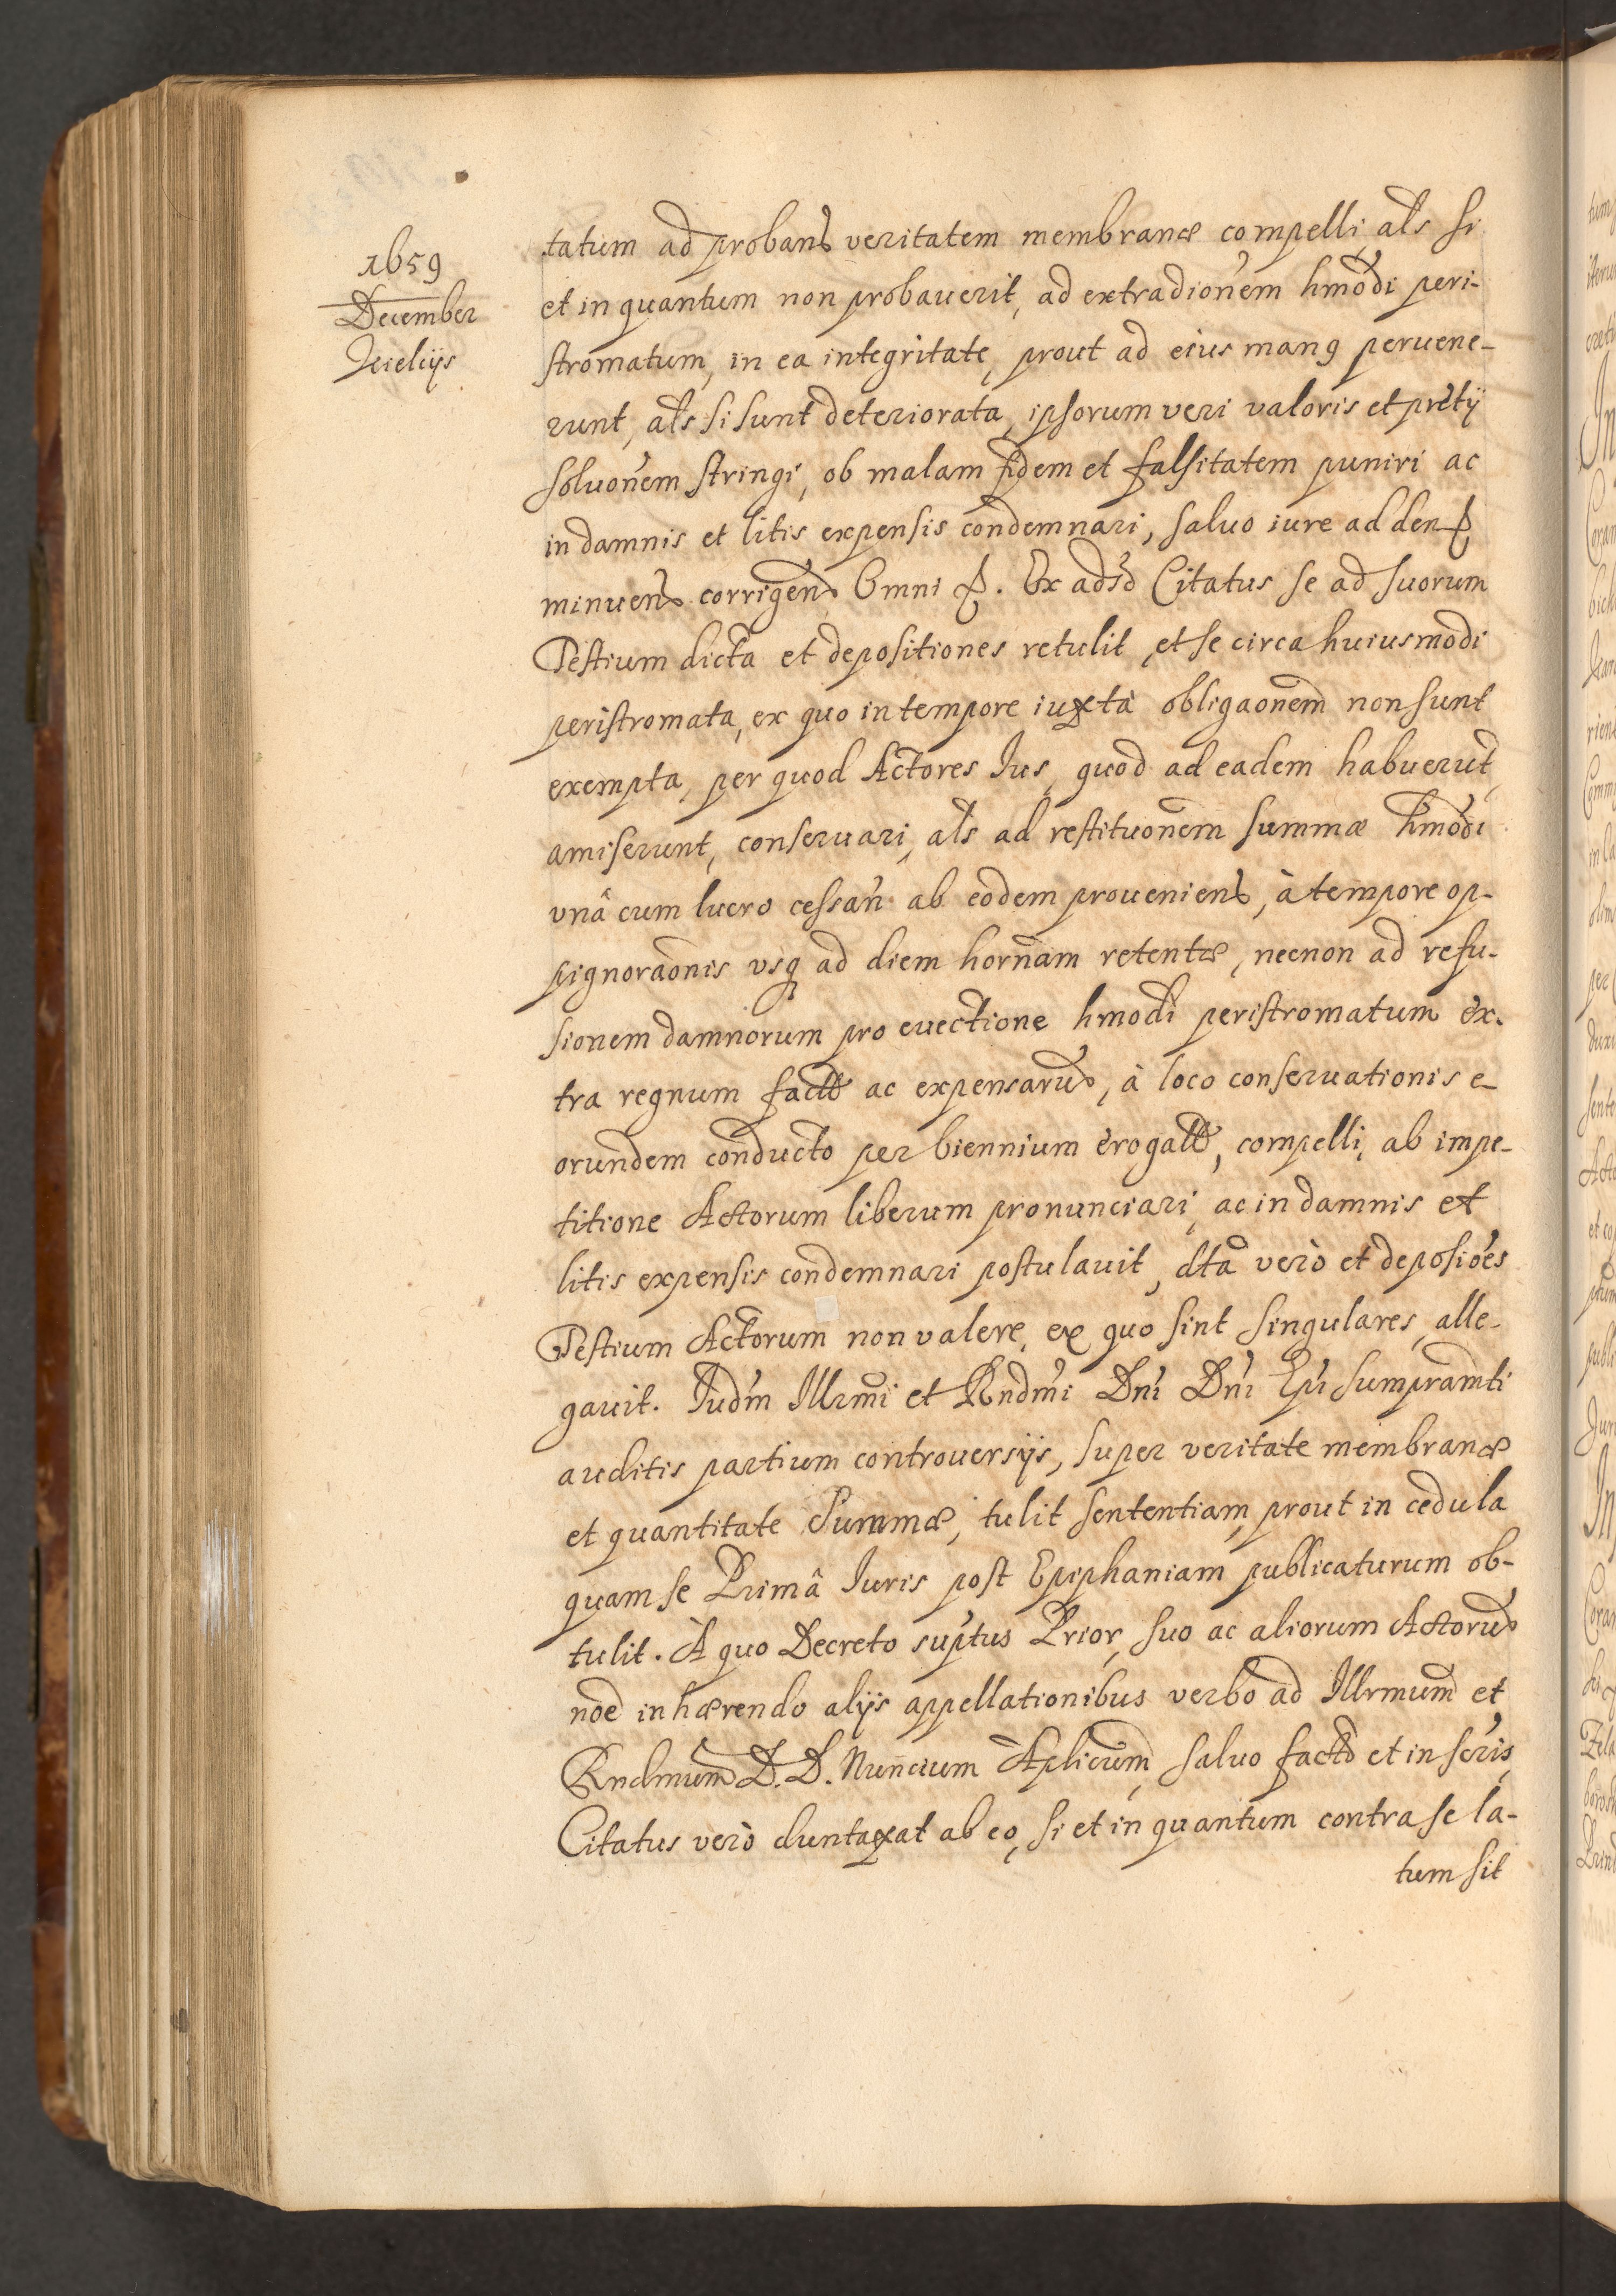 1659
December
Jeieliÿs
tatum ad proband veritatem membranæ compelli, als si
et in quantum non probauerit, ad extradionem hmodi peri-
stromatum, in ea integritate, prout ad eius manq peruene-
runt, als si sunt deteriorata, ipsorum veri valoris et pretÿ
soluonem stringi, ob malam fidem et falsitatem puniri ac
in damnis et litis expensis condemnari, saluo iure adden &
minuend corrigend Omni &. Ex adsd Citatus se ad suorum
Testium dicta et depositiones retulit, et se circa huiusmodi
peristromata, ex quo in tempore iuxtà obligaonem non sunt
exempta, per quod Actores Ius, quod ad eadem habuerut,
amiserunt, conseruari, als ad restituonem summæ hmodi
vnâ cum lucro cessan ab eodem prouenient, à tempore op-
pignoraonis vsq ad diem hornam retentæ, necnon ad refu-
sionem damnorum pro euectione hmodi peristromatum ex-
tra regnum fact ac expensaru, à loco conseruationis e-
orundem conducto per biennium erogat, compelli, ab impe-
titione Actorum liberum pronunciari, ac in damnis et
litis expensis condemnari postulauit, dta verò et deposioes
Testium Actorum non valere, ex quo sint singulares, alle-
gauit. Iudm Illrmi et Rndmi Dni Dni Epi sumpramti
auditis partium controuersÿs, super veritate membranæ
et quantitate Summæ, tulit sententiam, prout in cedula
quam se Primâ Iuris post Epiphaniam publicaturum ob-
tulit. A quo Decreto suptus Prior, suo ac aliorum Actoru
noe inhærendo alÿs appellationibus verbo ad Illrmum et
Rndmum D. D. Nuncium Aplicum, saluo facto et in scris,
Citatus verò duntaxat ab eo, si et in quantum contra se la-
tum sit